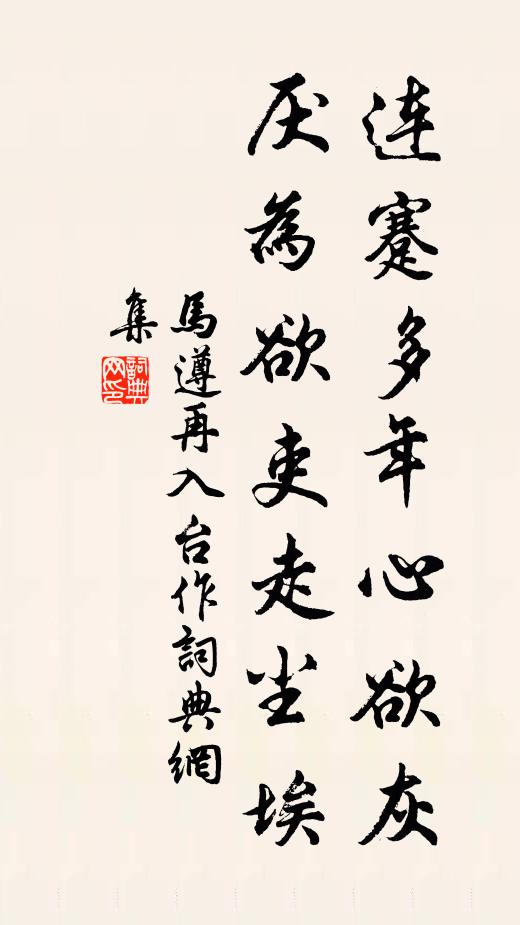 连蹇多年心欲灰
厌为欲吏走尘埃
馬遵再入台作詞典網
集
詞典
网印